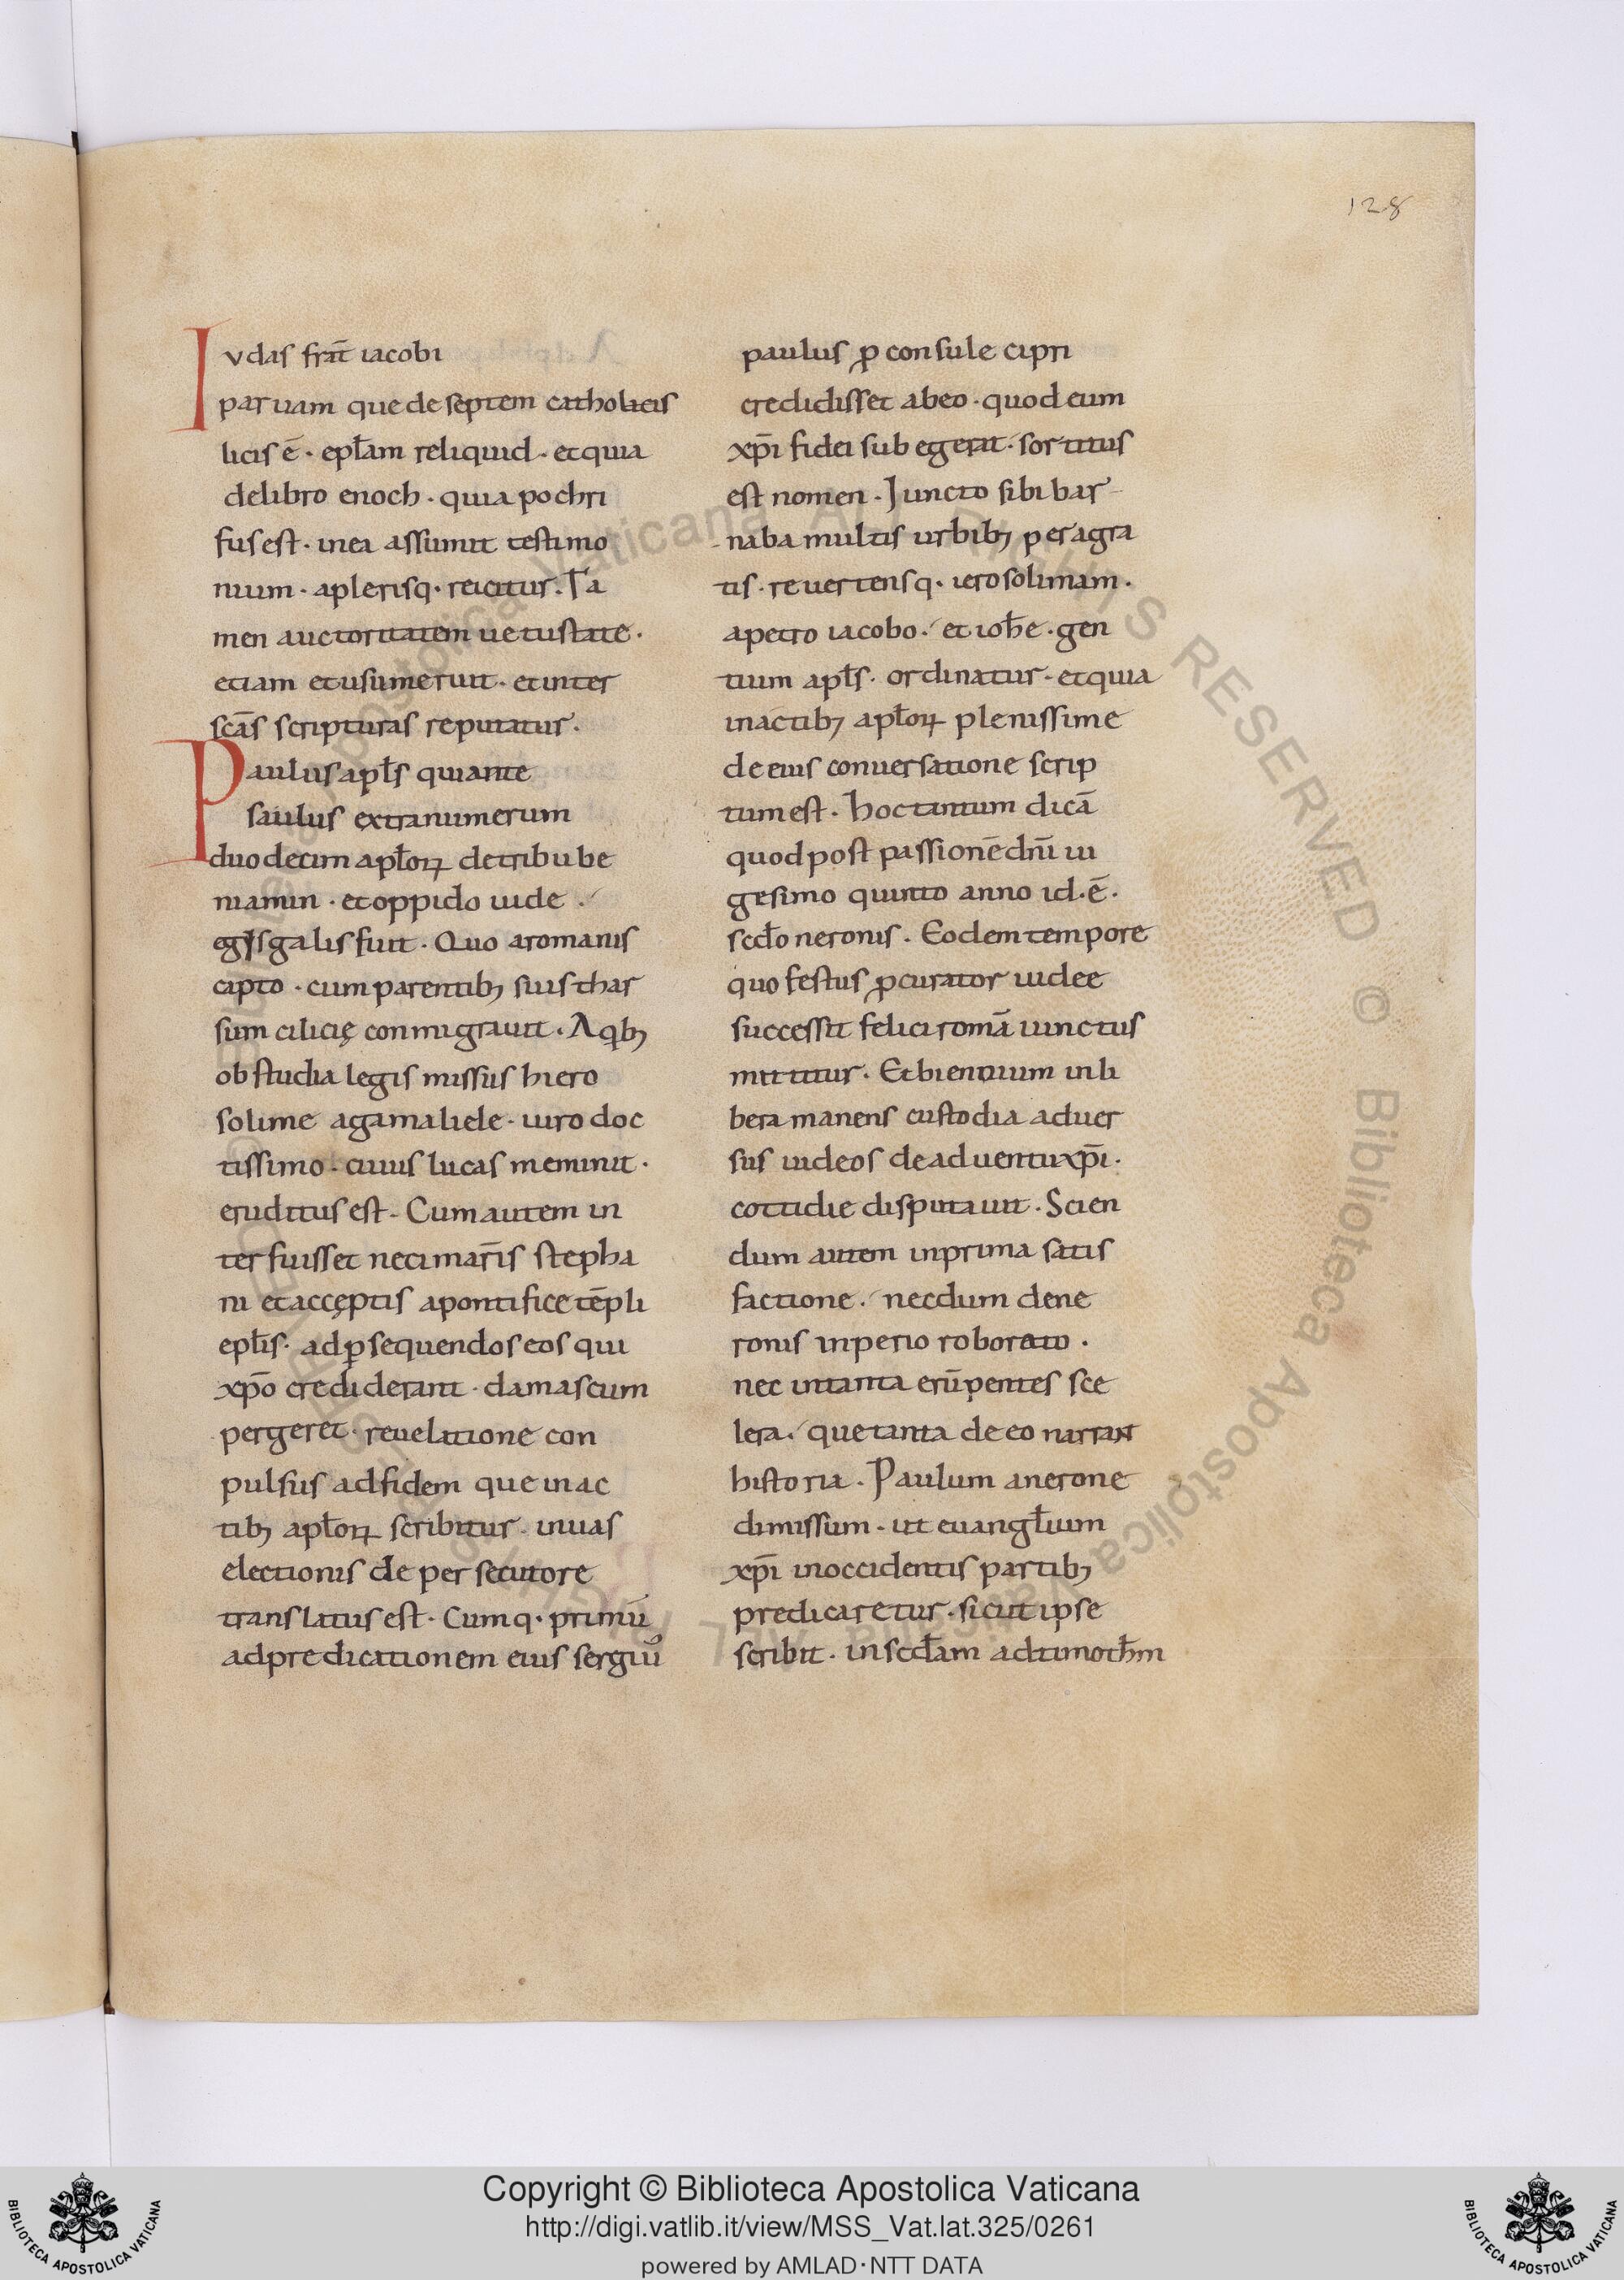 128
Iudas frat̄ iacobi
paruam que de septem catholicis
licis ē · epl̄am reliquid · et quia
de libro enoch · quia pochri
fus est · in ea assumit testimo
nium · a plerisq · reicitur . Ta
men auctoritatem uetustate ·
etiam et usu meruit · et inter
scās scripturas reputatur .
Paulus apl̄s qui ante
saulus extra numerum
duodecim apl̄oꝝ de tribu be
niamin · et oppido iude ·
egisgalis fuit · Quo a romanis
capto · cum parentib; suis thar
sum cilicię conmigrauit · A qb;
ob studia legis missus hiero
solime a gamaliele · uiro doc
tissimo · cuius lucas meminit ·
eruditus est · Cum autem in
terfuisset neci mar̄is stepha
ni et accęptis a pontifice tēpli
epl̄is · ad ꝑsequendos eos qui
xp̄o crediderant · damascum
pergeret · reuelatione con
pulsus ad fidem que in ac
tib; apl̄oꝝ scribitur · in uas
electionis de persecutore
translatus est · Cumq · primū
ad predicationem eius sergiū
paulus ꝓconsule cipri
credidisset ab eo · quod eum
xp̄i fidei subegerat · sortitus
est nomen · Juncto sibi bar-
naba multis urbib; peragra
tis · reuertensq · ierosolimam ·
a petro iacobo · et ioh̄e · gen
tium apl̄s · ordinatur · et quia
in actib; apl̄oꝝ plenissime
de eius conuersatione scrip
tum est · hoc tantum dicā
quod post passionē dn̄i ui
gesimo quinto anno id · ē ·
scdo neronis · Eodem tempore
quo festus ꝓcurator iudee
successit felici romā uinctus
mittitur · Et biennium in li
bera manens custodia aduer
sus iudeos de aduentu xp̄i ·
cottidie disputauit · Scien
dum autem in prima satis
factione · necdum dene
ronis inperio roborato ·
nec in tanta erūpentes sce
lera · que tanta de eo narrant
historia · Paulum a nerone
dimissum · ut euangl̄ium
xp̄i in occidentis partib;
predicaretur · sicut ipse
scribit · in scdam ad timoth̄m
Copyright © Biblioteca Apostolica Vaticana
http://digi.vatlib.it/view/MSS_Vat.lat.325/0261
powered by AMLAD·NTT DATA